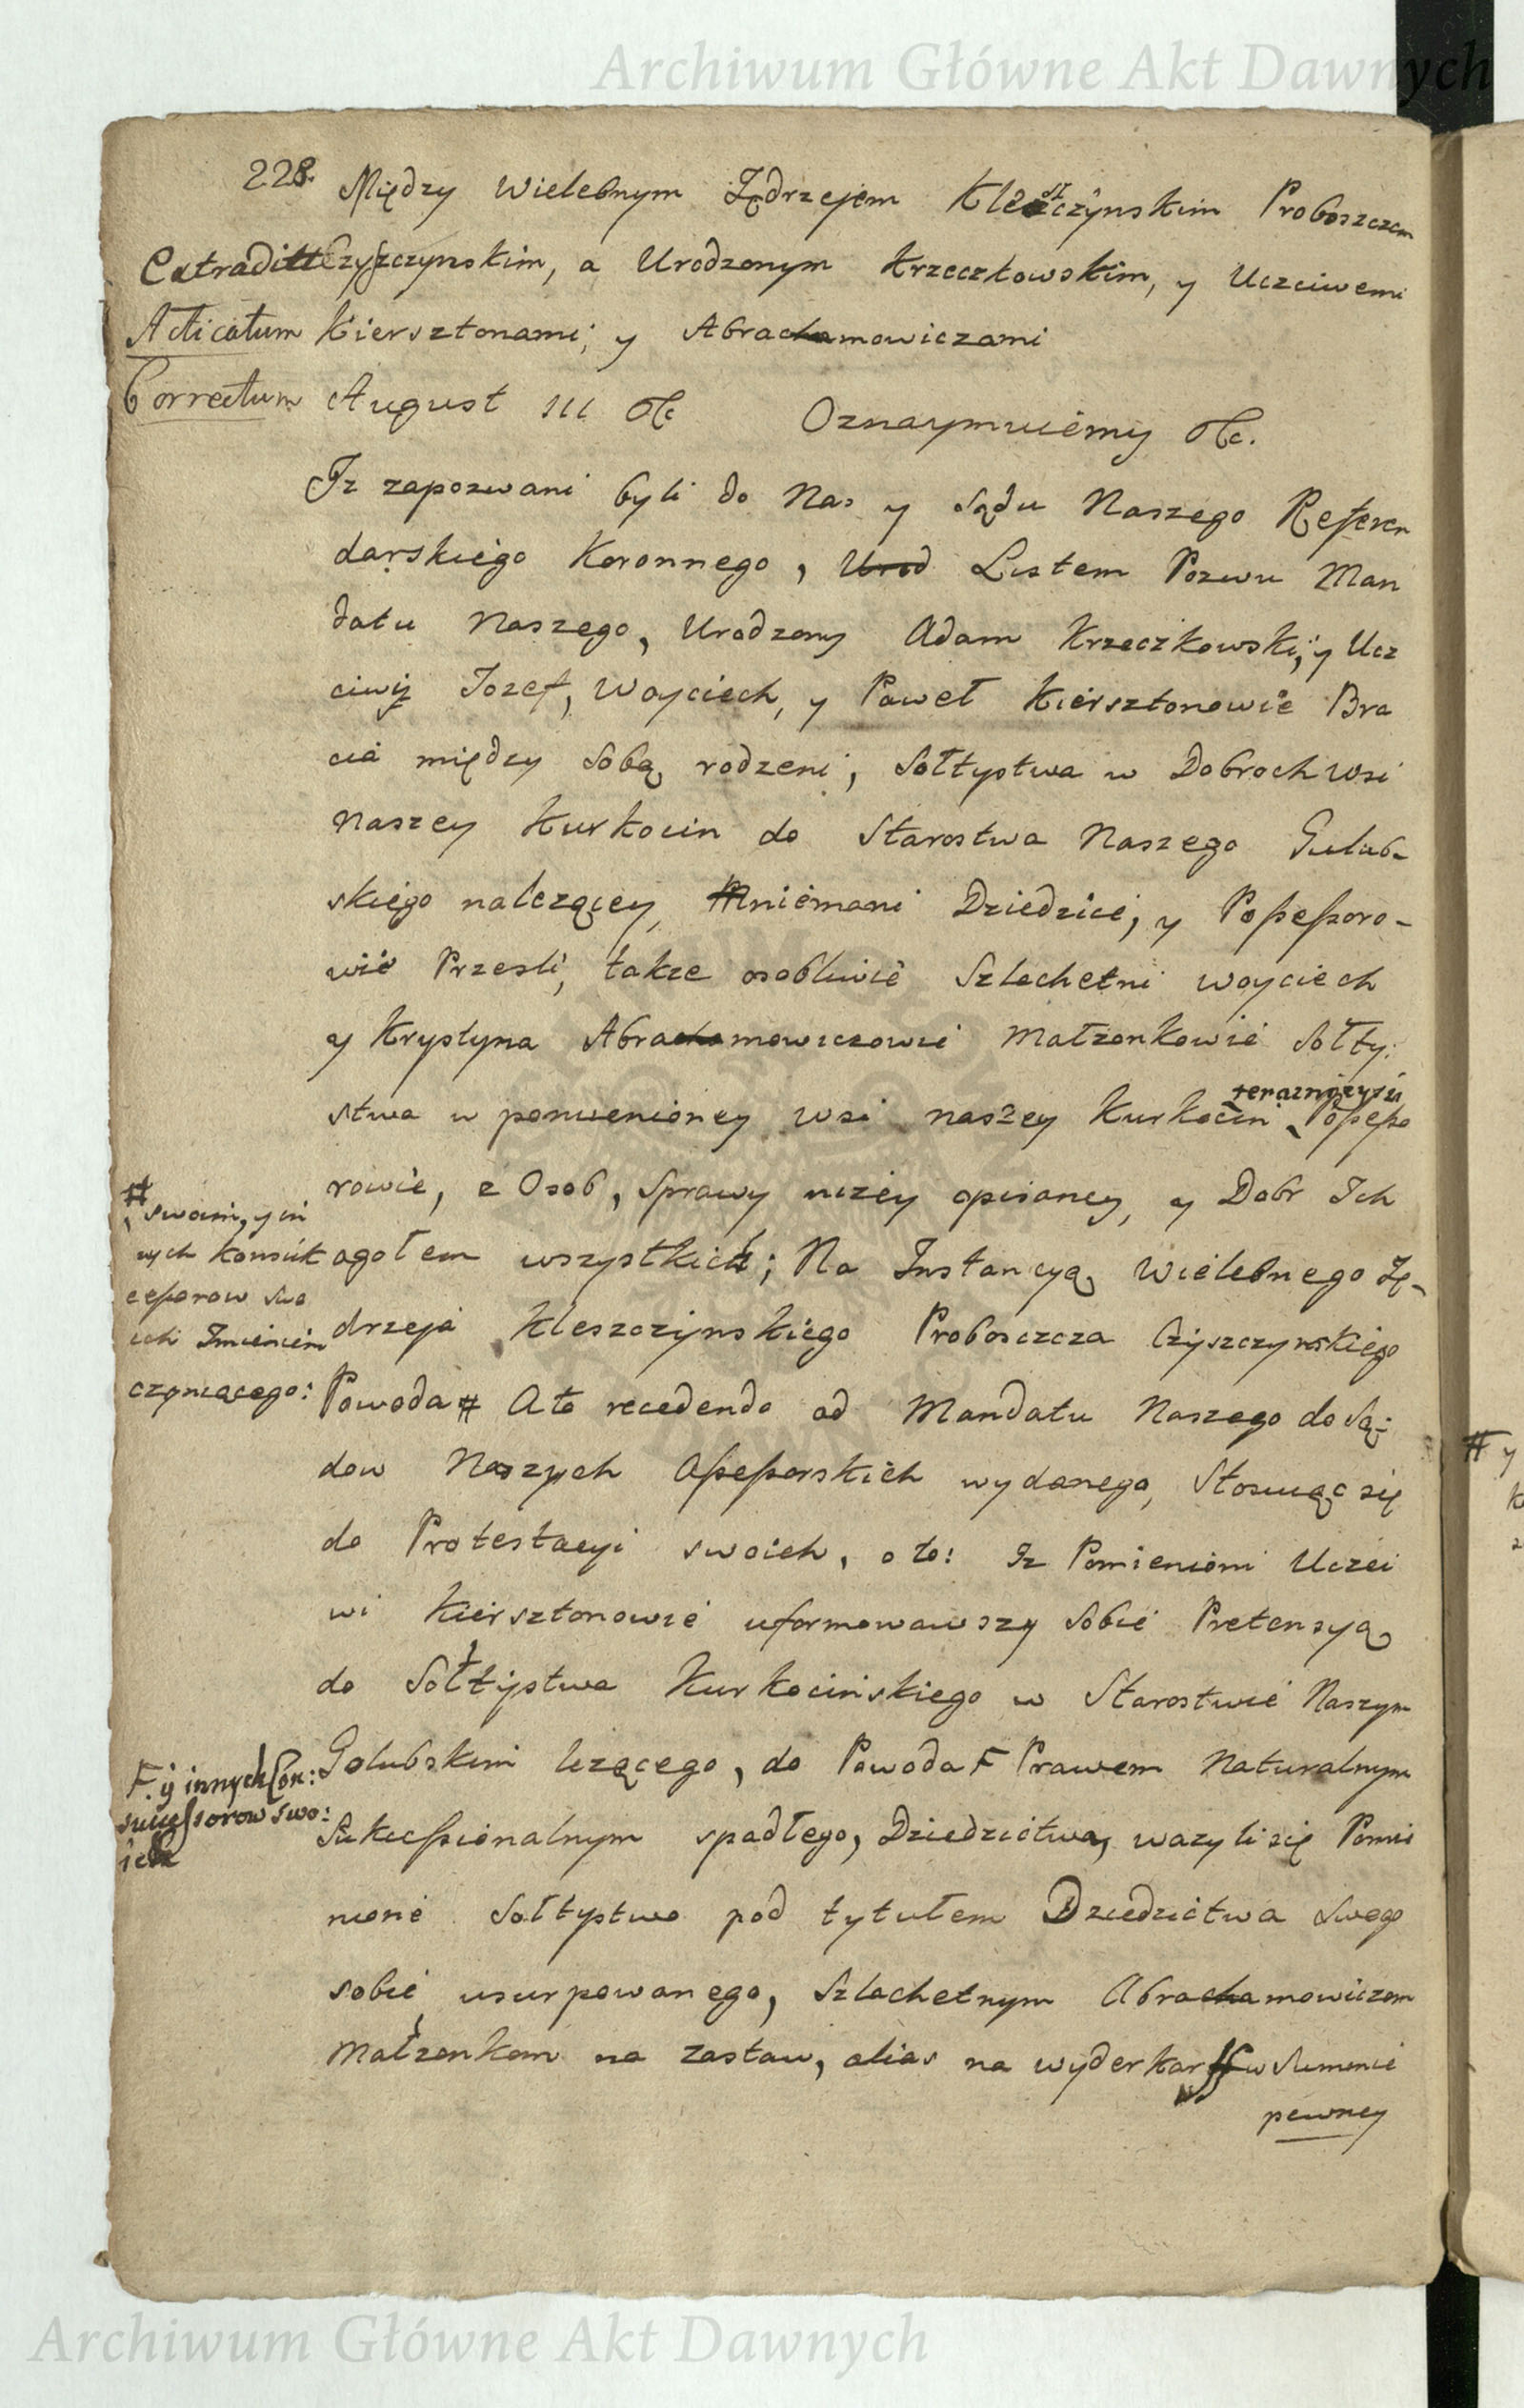 Archiwum Główne Akt Dawnych
228. Między Wielebnym Jędrzejem Kleszczynskim Proboszczem
Extraditt Czyszczynskim, a Urodzonym Krzeczkowskim, y Uczciwemi
Acticatum Kiersztonami, y Abrachamowiczami
Correctum August III etc Oznaymuiemy etc.
Iz zapozwani byli do Nas y Sądu Naszego Referen
darskiego Koronnego, Urod Listem Pozwu Man
datu Naszego, Urodzony Adam Krzeczkowski, y Ucz
ciwi Jozef, Woyciech, y Paweł Kiersztonowie Bra
cia między Sobą rodzeni, Sołtystwa w Dobrach Wsi
Naszey Kurkocin do Starostwa Naszego Golub-
skiego nalezącey, Mniemani Dziedzice, y Possessoro-
wie Przeszli, takze osobliwie Szlachetni Woyciech
y Krystyna Abrachamowiczowie Małzonkowie Sołty-
teraznieyszi
stwa w pomienioney Wsi naszey Kurkocin Possesso
rowie, z Osob, Sprawy nizey opisaney, y Dobr Ich
# swoim, y in
nych Konsuk
cessorow swo
ich Imieniem
czyniącego:
ogołem wszystkich; Na Instancyą Wielebnego Ję-
drzeja Kleszczynskiego Proboszcza Czyszczynskiego
Powoda # A to recedendo od Mandatu Naszego do Są-
dow Naszych Assessorskich wydanego, Stosuiąc się
do Protestacyi swoich, o to: Iz Pomienioni Uczci
wi Kiersztonowie uformowawszy Sobie Pretensyą
do Sołtystwa Kurkocinskiego w Starostwie Naszym
Golubskim lezącego, do Powoda F Prawem Naturalnym
F. y innych Con:
sucessorow swo:
ich
Sukcessionalnym spadłego, Dziedzictwa, wazyli się Pomie
nione Sołtystwo pod tytułem Dziedzictwa Swego
sobie usurpowanego, Szlachetnym Abrachamowiczom
Małzonkom na Zastaw, alias na wyderkaff w Summie
pewney
# y
Archiwum Główne Akt Dawnych